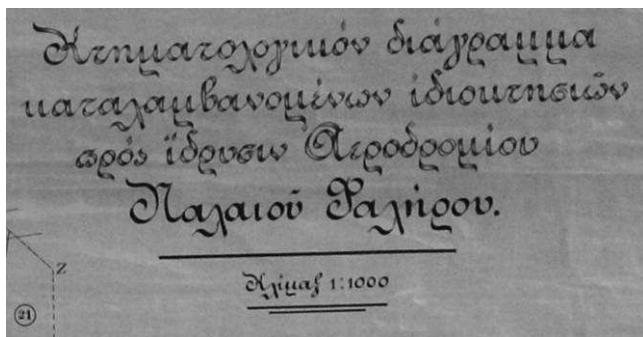 Κτηματολογικόν διάγραμμα
καταλαμβανομένων ἰδιοκτησιῶν
πρός ἵδρυσιν Ἀεροδρομίου
Παλαιοῦ Φαλήρου.
Κλίμαξ 1:1000
Z
21